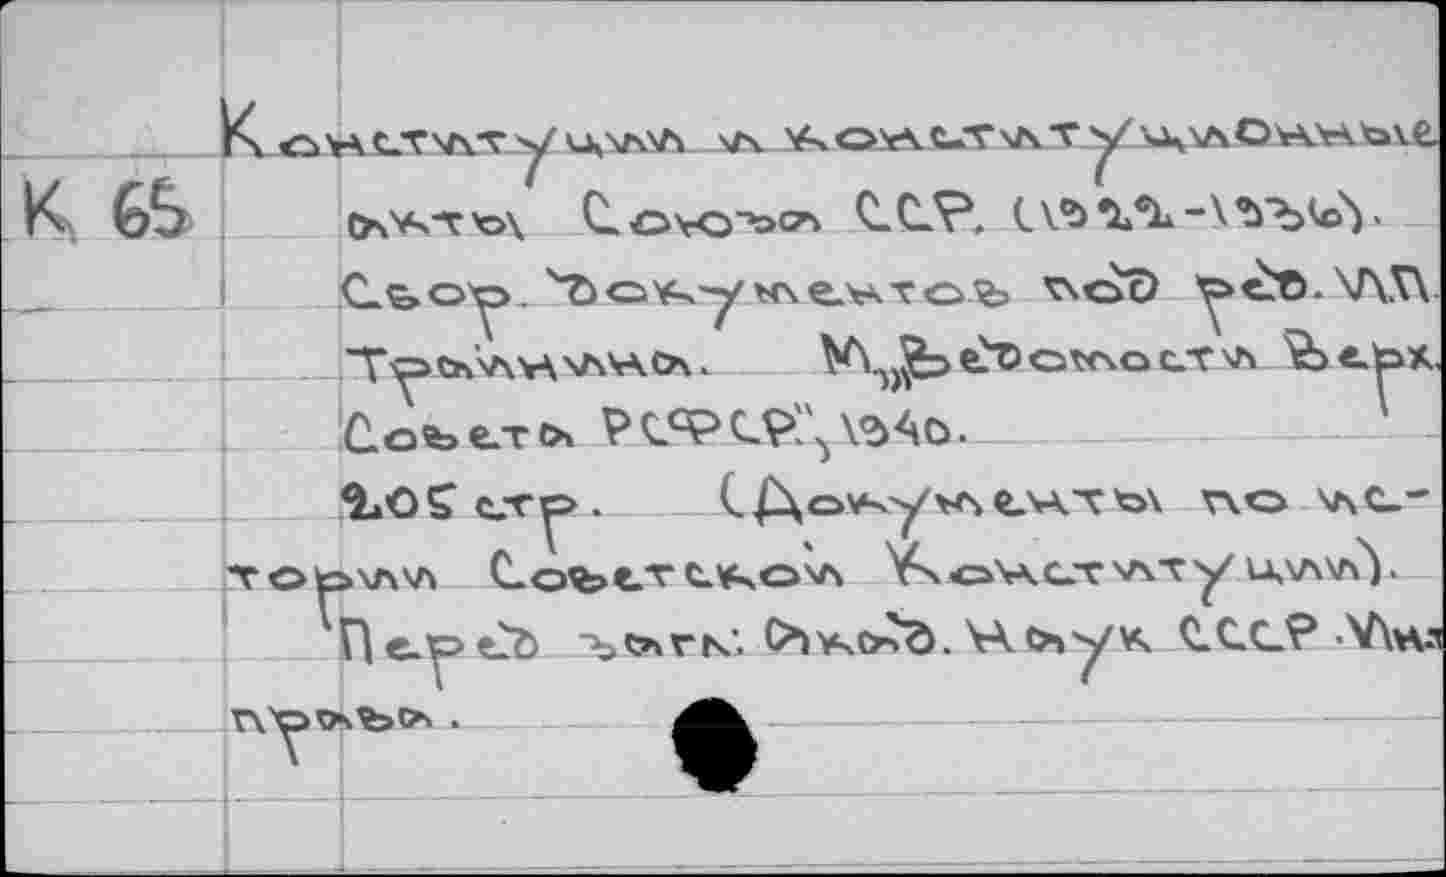 Конституции и конституционные
К 65 акты Союза ССР. (1922-1936).
Сбор. документов под ред. И.П.
Трайнина. М.,„Ведомости Верх.
Совета РСФСР", 1940.
205 стр. (Документы по ис-
тории Советской Конституции).
Перед загл: Акад. Наук СССР. Ин-т
права.